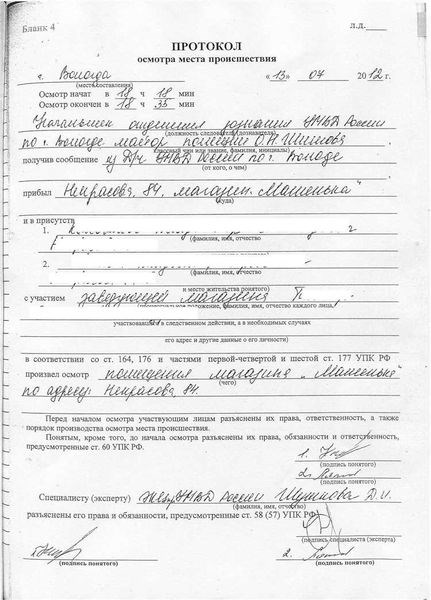 Бланк 4
Л.Д.
ПРОТОКОЛ
осмотра места происшествия
г. Вологда «13» 07 2012 г.
(место составления)
Осмотр начат в 18 ч 18 мин
Осмотр окончен в 18 ч 35 мин
Начальник отделения дознания УМВД России
(должность следователя (дознавателя),
по г. Вологде майор полиции О.Н.
классный чин или звание, фамилия, инициалы)
получив сообщение из Д/ч УМВД России по г. Вологде
(от кого, о чем)
прибыл Некрасова, 84, магазин „Машенька"
(куда)
и в присутствии
1.
(фамилия, имя, отчество
2.
(фамилия, имя, отчество
и место жительства понятого)
с участием заведующей магазина П
(процессуальное положение, фамилия, имя, отчество каждого лица,
участвовавшего в следственном действии, а в необходимых случаях
его адрес и другие данные о его личности)
в соответствии со ст. 164, 176 и частями первой-четвертой и шестой ст. 177 УПК РФ
произвел осмотр помещения магазина „Машенька"
(чего)
по адресу: Некрасова, 84.
Перед началом осмотра участвующим лицам разъяснены их права, ответственность, а также
порядок производства осмотра места происшествия.
Понятым, кроме того, до начала осмотра разъяснены их права, обязанности и ответственность,
предусмотренные ст. 60 УПК РФ.
1.
(подпись понятого)
2.
(подпись понятого)
Специалисту (эксперту) УМВД России Д.И.
(фамилия, имя, отчество)
разъяснены его права и обязанности, предусмотренные ст. 58 (57) УПК РФ
(подпись специалиста (эксперта)
2.
(подпись понятого) (подпись понятого)